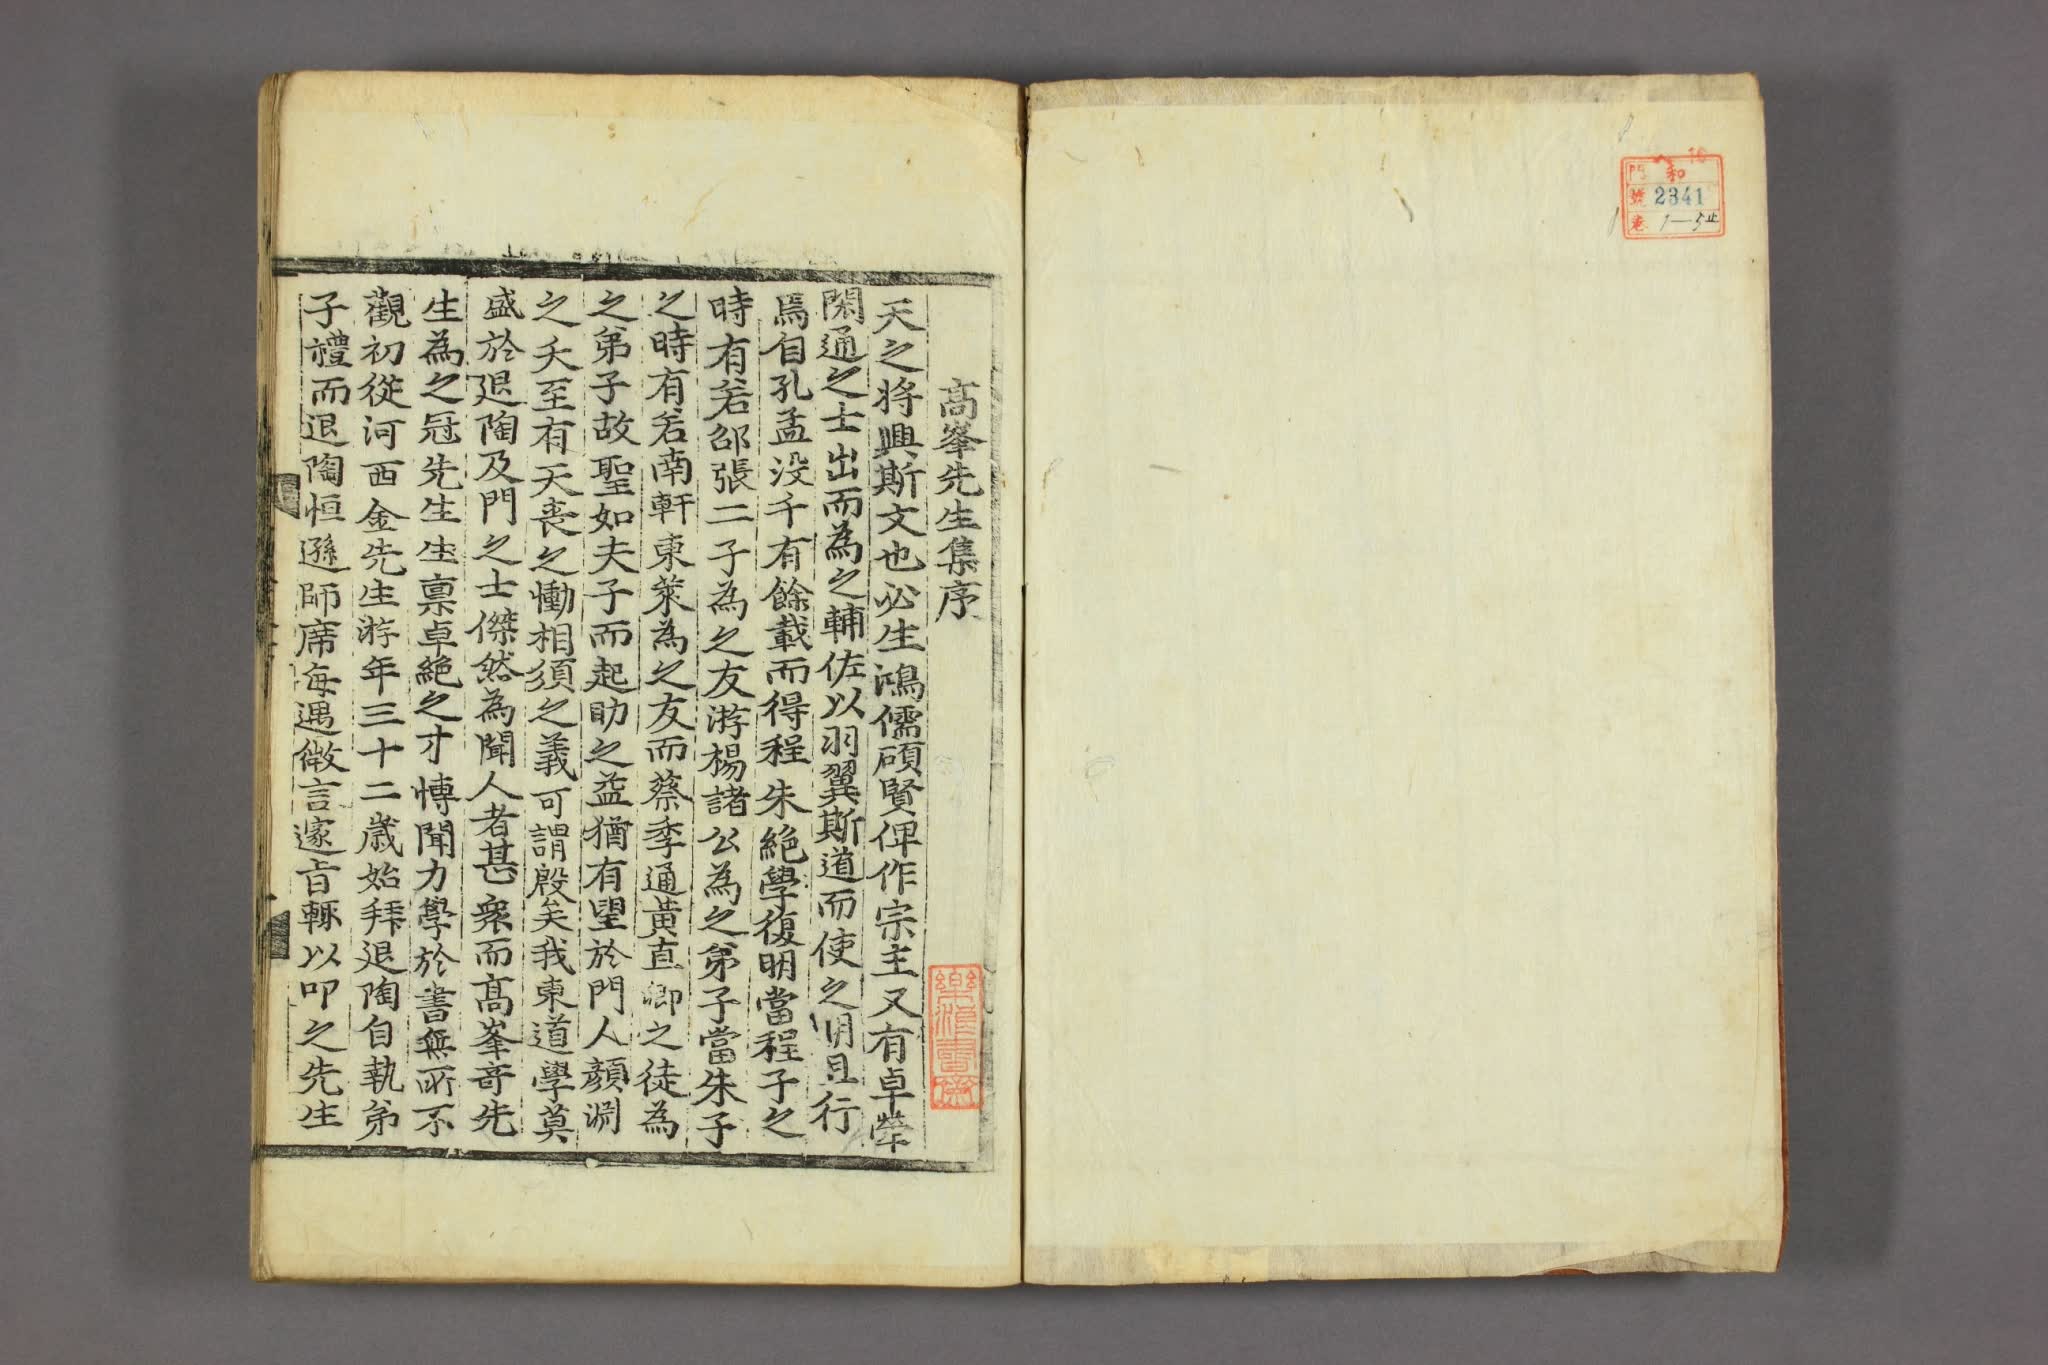 和
門
號 2341
卷 1—5止
高峯先生集序
天之將興斯文也必生鴻儒碩賢俾作宗主又有卓犖
閎通之士出而為之輔佐以羽翼斯道而使之明且行
焉自孔孟沒千有餘載而得程朱絶學復明當程子之
時有若邵張二子為之友游楊諸公為之弟子當朱子
之時有若南軒東萊為之友而蔡季通黃直卿之徒為
之弟子故聖如夫子而起助之益猶有望於門人顏淵
之夭至有天喪之慟相須之義可謂殷矣我東道學莫
盛於退陶及門之士傑然為聞人者甚衆而高峯奇先
生為之冠先生生禀卓絶之才博聞力學於書無所不
觀初從河西金先生游年三十二歲始拜退陶自執弟
子禮而退陶恒遜師席每遇微言邃旨輒以叩之先生